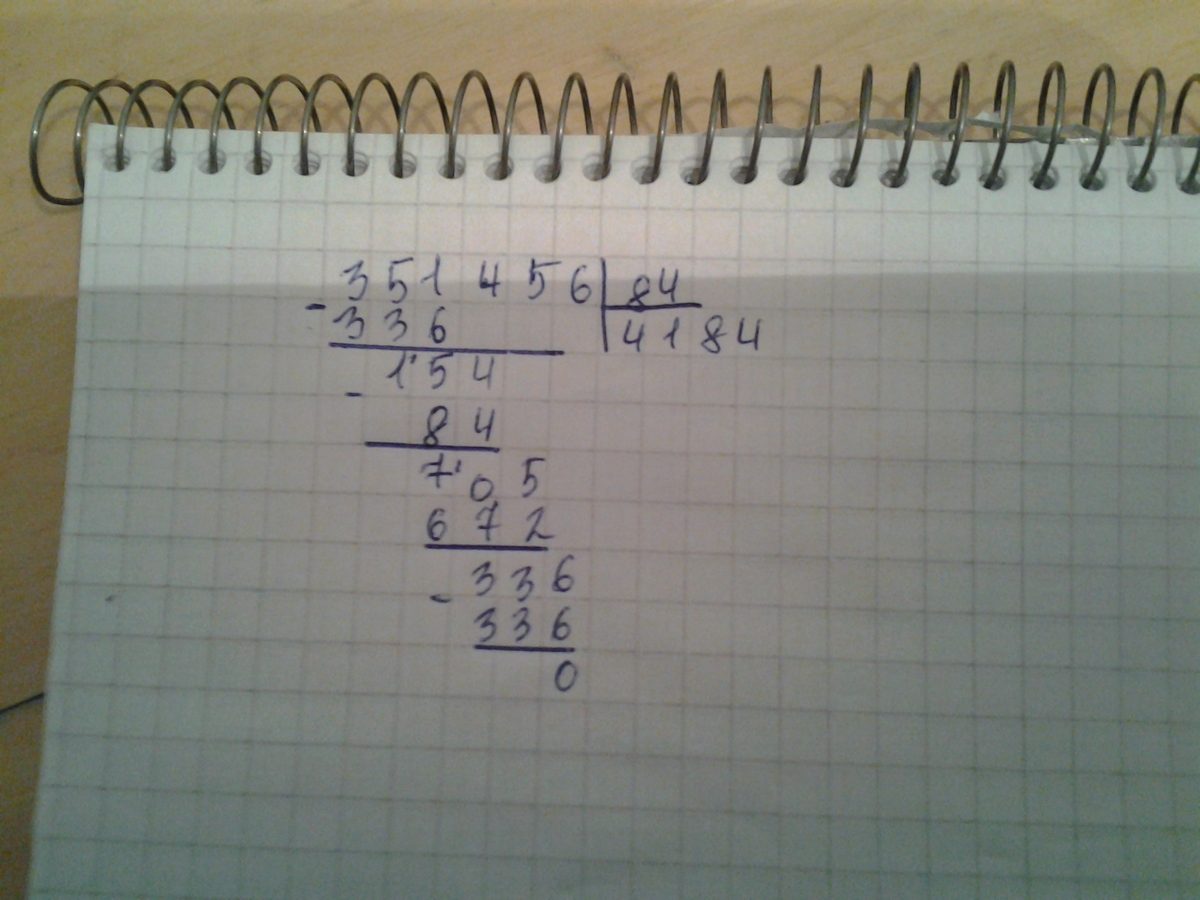 351456 | 84
- 336 | 4184
154
- 84
705
672
336
- 336
0